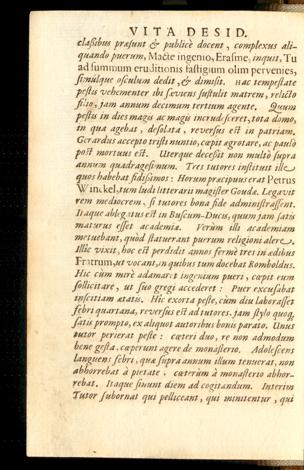 VITA DESID.
classibus præsunt & publicè docent, complexus ali-
quando puerum, Macte ingenio, Erasme, inquit, Tu
ad summum eruditionis fastigium olim pervenies,
simúlque osculum dedit, & dimisit. Hac tempestate
pestis vehementer ibi sæviens sustulit matrem, relicto
filio, jam annum decimum tertium agente. Quum
pestis in dies magis ac magis incrudesceret, tota domo,
in qua agebat, desolata, reversus est in patriam.
Gerardus accepto tristi nuntio, cœpit ægrotare, ac paulò
pòst mortuus est. Uterque decessit non multò supra
annum quadragesimum. Tres tutores instituit ille
quos habebat fidissimos: Horum præcipuus erat Petrus
Winckel, tum ludi litterarii magister Goudæ. Legavit
rem mediocrem, si tutores bona fide administrassent.
Itaque ablegatus est in Buscum-Ducis, quum jam satis
maturus esset academiæ. Verùm illi academiam
metuebant, quòd statuerant puerum religioni alere.
Illic vixit, hoc est perdidit annos fermè tres in ædibus
Fratrum, ut vocant, in quibus tum docebat Romboldus.
Hic cùm mirè adamaret ingenium pueri, cœpit eum
sollicitare, ut suo gregi accederet: Puer excusabat
inscitiam ætatis. Hic exorta peste, cùm diu laborasset
febri quartana, reversus est ad tutores, jam stylo quoque
satis prompto, ex aliquot autoribus bonis parato. Unus
tutor perierat peste: cæteri duo, re non admodum
bene gesta, cœperunt agere de monasterio. Adolescens
languens febri, quæ supra annum illum tenuerat, non
abhorrebat à pietate, cæterùm à monasterio abhor-
rebat. Itaque sinunt diem ad cogitandum. Interim
Tutor subornat qui pelliceant, qui minitentur, qui